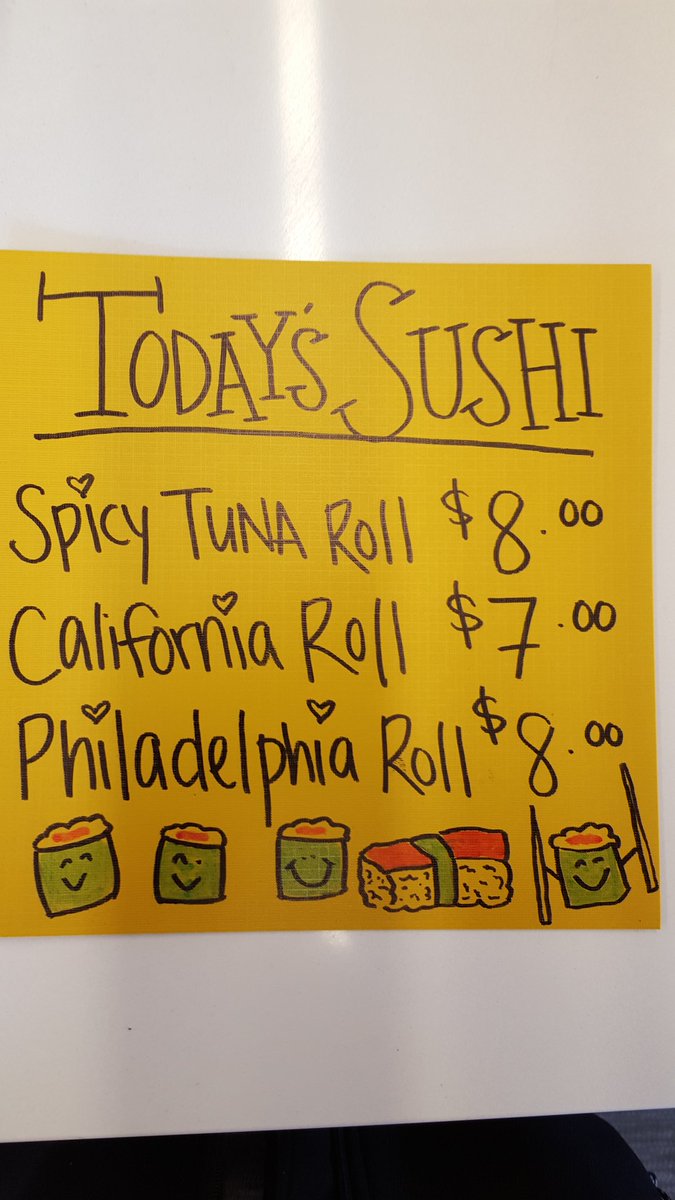 TODAY'S SUSHI
Spicy TUNA Roll $8.00
California Roll $7.00
Philadelphia Roll $8.00